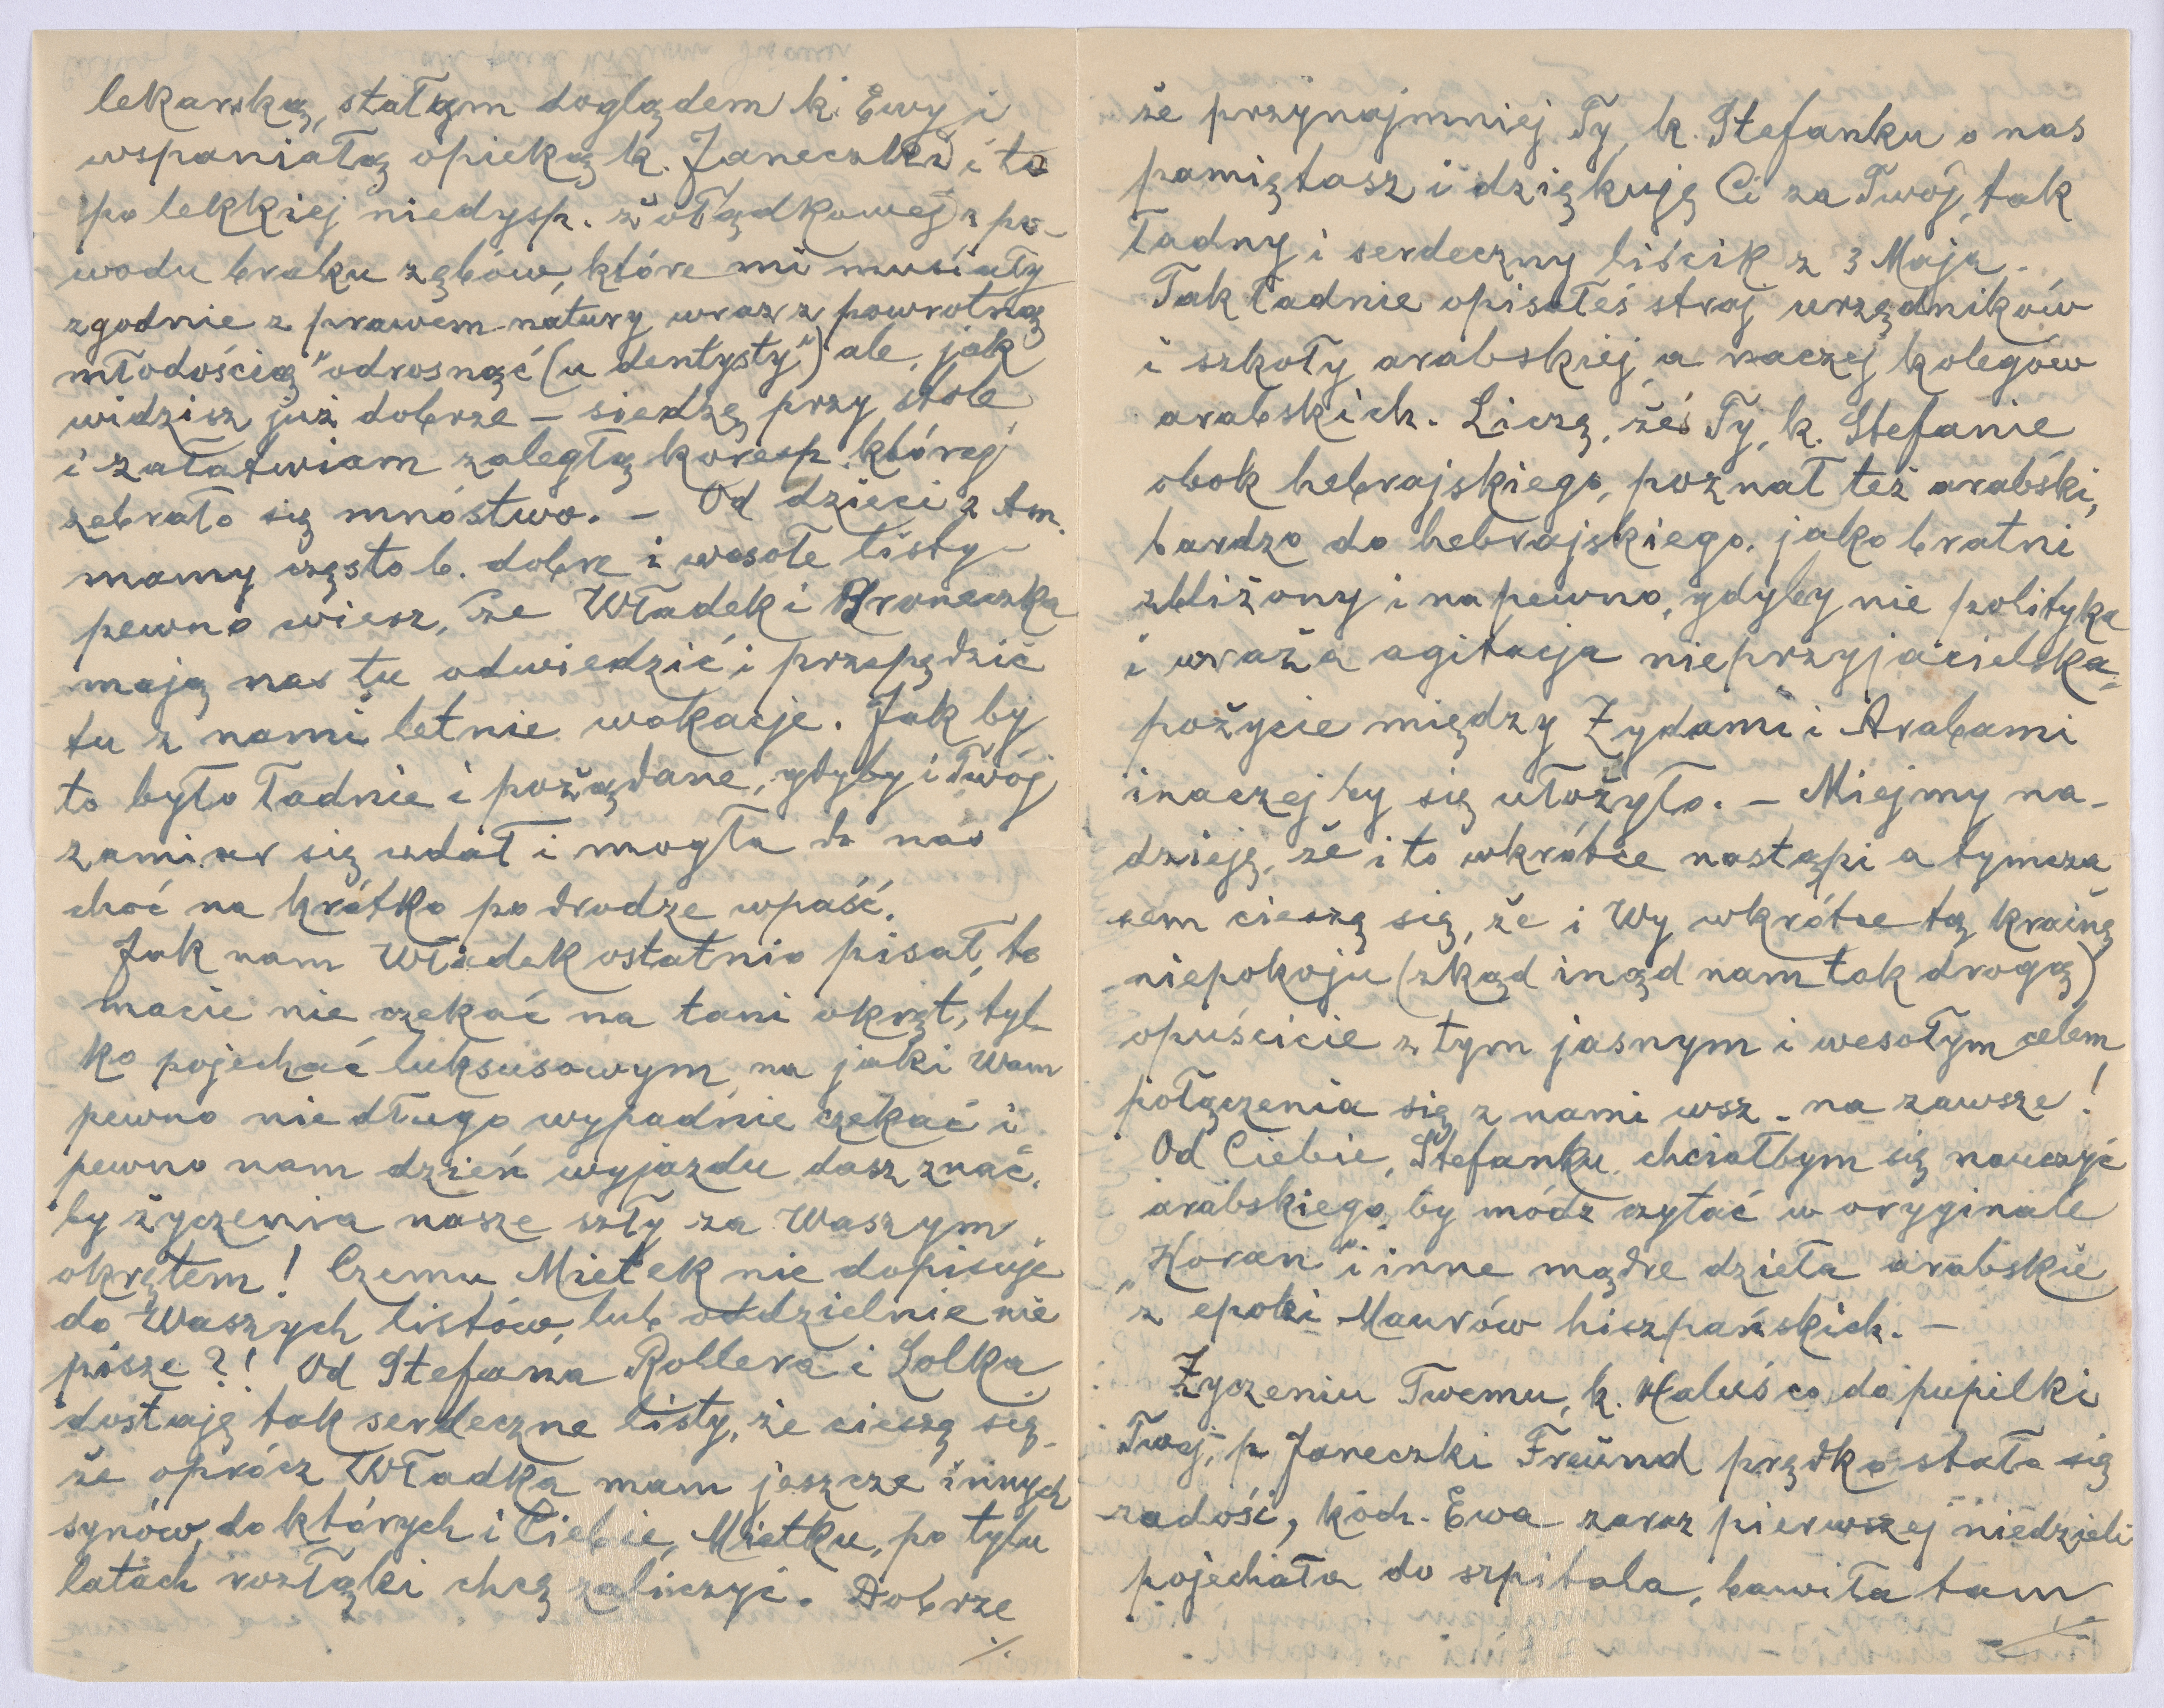 lekarską, stałym doglądem k. Ewy i
wspaniałą opieką k. Janeczki i to
po lekkiej niedysp. żołądkowej z po-
wodu braku zębów, które mi musiały
zgodnie z prawem natury wraz z powrotną
młodością "odrosnąć (u dentysty") ale, jak
widzisz już dobrze – siedzę przy stole
i załatwiam zaległą koresp. której
zebrało się mnóstwo. – Od dzieci z Am.
mamy często b. dobre i wesołe listy –
pewno wiesz, że Władek i Broneczka
mają nas tu odwiedzić i przepędzić
tu z nami letnie wakacje. Jak by
to było ładnie i pożądane, gdyby i Twój
zamiar się udał i mogła do nas
choć na krótko po drodze wpaść.
Jak nam Władek ostatnio pisał, to
macie nie czekać na tani okręt, tyl-
ko pojechać luksusowym, na jaki Wam
pewno niedługo wypadnie czekać i
pewno nam dzień wyjazdu dasz znać,
by życzenia nasze szły za Waszym
okrętem! Czemu Mietek nie dopisuje
do Waszych listów, lub oddzielnie nie
pisze?! Od Stefana Rollera i Lolka
dostaję tak serdeczne listy, że cieszę się,
że oprócz Władka mam jeszcze innych
synów, do których i Ciebie, Mietku, po tylu
latach rozłąki chcę zaliczyć. Dobrze
./.
że przynajmniej Ty, k. Stefanku o nas
pamiętasz i dziękuję Ci za Twój, tak
ładny i serdeczny liścik z 3 Maja.
Tak ładnie opisałeś strój urzędników
i szkoły arabskiej, a raczej kolegów
arabskich. Liczę, żeś Ty, k. Stefanie
obok hebrajskiego, poznał też arabski,
bardzo do hebrajskiego, jako bratni
zbliżony i na pewno, gdyby nie polityka
i wraża agitacja nieprzyjacielska,
pożycie między Żydami i Arabami
inaczej by się ułożyło. – Miejmy na-
dzieję, że i to wkrótce nastąpi a tymcza
sem cieszę się, że i Wy wkrótce tą krainę
niepokoju (skąd inąd nam tak drogą)
opuścicie z tym jasnym i wesołym celem,
połączenia się z nami wsz. na zawsze!
Od Ciebie, Stefanku, chciałbym się nauczyć
arabskiego, by módz czytać w oryginale
„Koran" i inne mądre dzieła arabskie
z epoki Maurów hiszpańskich. –
Życzeniu Twemu, k. Haluś co do pupilki
Twej, p. Janeczki Freund prędko stało się
zadość, koch. Ewa zaraz pierwszej niedzieli
pojechała do szpitala, bawiła tam
./.